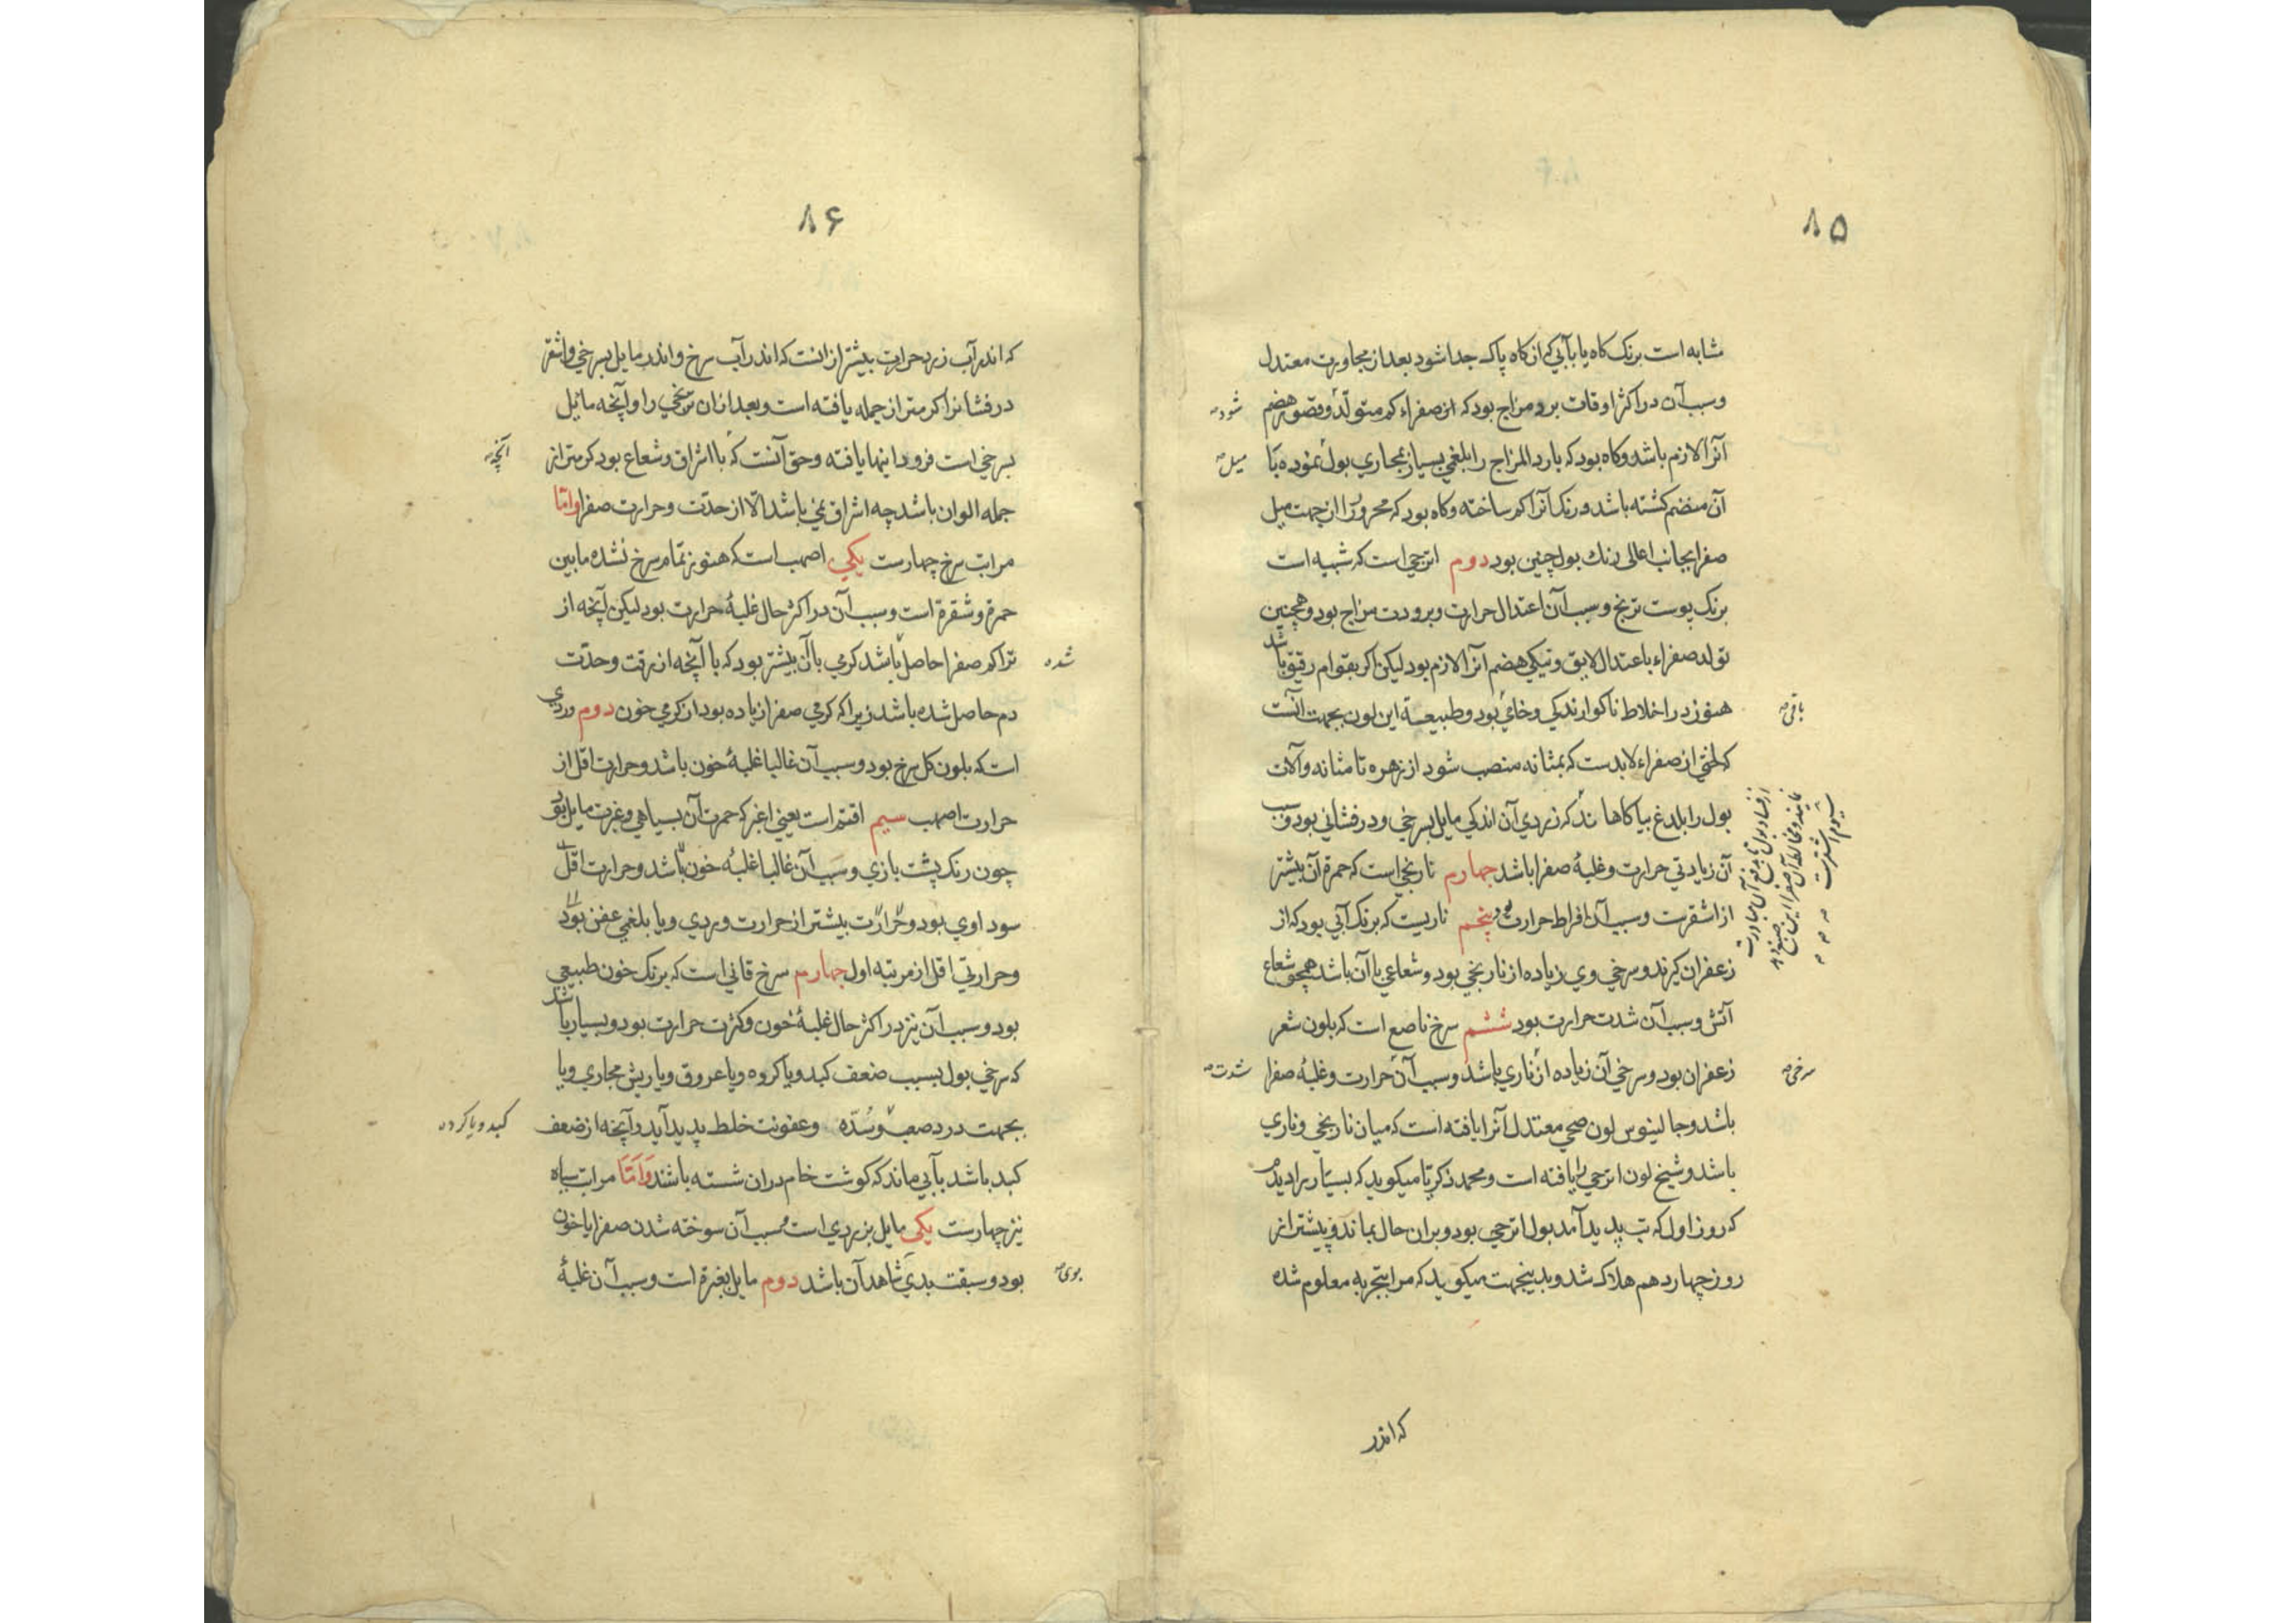 ۸۵
مشابه است برنک کاه یا بآبی که از کاه پاک جدا شود بعد از مجاورت معتدل
وسبب آن در اکثر اوقات برد مزاج بود که از صفراء کم متولد وقصور هضم
شود
آنرا لازم باشد وکاه بود که بارد المزاج را بلغمی بسیار بمجاری بول نموده با
میل
آن منضم کشته باشد ورنک آنرا کم ساخته وکاه بود که محرور را از جهت میل
صفرا بجانب اعالی رنك بول چنین بود دوم اترجی است که شبیه است
برنک پوست ترنج وسبب آن اعتدال حرارت وبرودت مزاج بود وهمچنین
تولد صفراء باعتدال لایق ونیکی هضم آنرا لازم بود لیکن اکر بقوام رقیق باشد
هنوز در اخلاط ناکوارندکی وخامی بود وطبیعة این لون بجهت آنست
باقی
که لختی از صفراء لابدست که بمثانه منصب شود از زهره تا مثانه وآلات
بول را بلدغ بیاکاهاند که زردی آن اندکی مایل بسرخی ودرفشانی بود وسبب
سیوم اشقرست
آن زیادتی حرارت وغلبۀ صفرا باشد چهارم نارنجی است که حمرة آن بیشتر
از اشقرست وسبب آن افراط حرارت بود پنجم ناریست که برنک آبی بود که از
زعفران کیرند وسرخی وی زیاده از نارنجی بود وشعاعی با آن باشد همچو شعاع
آتش وسبب آن شدت حرارت بود ششم سرخ ناصع است که بلون شعر
زعفران بود وسرخی آن زیاده از ناری باشد وسبب آن حرارت وغلبۀ صفرا
سرخی
شدت
باشد وجالینوس لون صحی معتدل آنرا یافته است که میان نارنجی وناری
باشد وشیخ لون اترجی را یافته است ومحمد زکریا میکوید که بسیار را دیدم
که روز اول که تب پدید آمد بول اترجی بود وبران حال بماند وپیشتر از
روز چهاردهم هلاک شد وبدینجهت میکوید که مرا بتجربه معلوم شده
که اندر
۸۶
که اندر آب زرد حرارت بیشتر از انست که اندر آب سرخ واندر مایل بسرخی واشقر
درفشانرا کرمتر از جمله یافته است وبعد ازان نارنجی را وآنچه مائل
بسرخی است فرود اینها یافته وحق آنست که با اشراق وشعاع بود کرمتر از
آنچه
جمله الوان باشد چه اشراق نمی باشد الّا از حدّت وحرارت صفرا وامّا
مراتب سرخ چهارست یکی اصهب است که هنوز تمام سرخ نشده مابین
حمرة وشقرة است وسبب آن در اکثر حال غلبۀ حرارت بود لیکن آنچه از
تراکم صفرا حاصل باشد کرمی با آن بیشتر بود که با آنچه از رقت وحدّت
شده
دم حاصل شده باشد زیرا که کرمی صفرا زیاده بود از کرمی خون دوم وردی
است که بلون کل سرخ بود وسبب آن غالبا غلبۀ خون باشد وحرارت اقل از
حرارت اصهب سیم اقتم است یعنی اغبر که حمرت آن بسیاهی وغبرت مایل بود
چون رنک پشت بازی وسبب آن غالبا غلبۀ خون باشد وحرارت اقل
سوداوی بود وحرارت بیشتر از حرارت وردی ویا بلغمی عفن بود
وحرارتی اقل از مرتبه اول چهارم سرخ قانی است که برنک خون طبیعی
بود وسبب آن نیز در اکثر حال غلبۀ خون وکثرت حرارت بود وبسیار باشد
که سرخی بول بسبب ضعف کبد ویا کروه ویا عروق ویا ریش مجاری ویا
بجهت درد صعب وسُدّه وعفونت خلط پدید آید وآنچه از ضعف
کبد ویا کرده
کبد باشد بآبی ماند که کوشت خام دران شسته باشند وَامّا مراتب سیاه
نیز چهارست یکی مایل بزردی است وسبب آن سوخته شدن صفرا یا خون
بود وسبقت بدی شاهد آن باشد دوم مایل بغبرة است وسبب آن غلبۀ
بوی